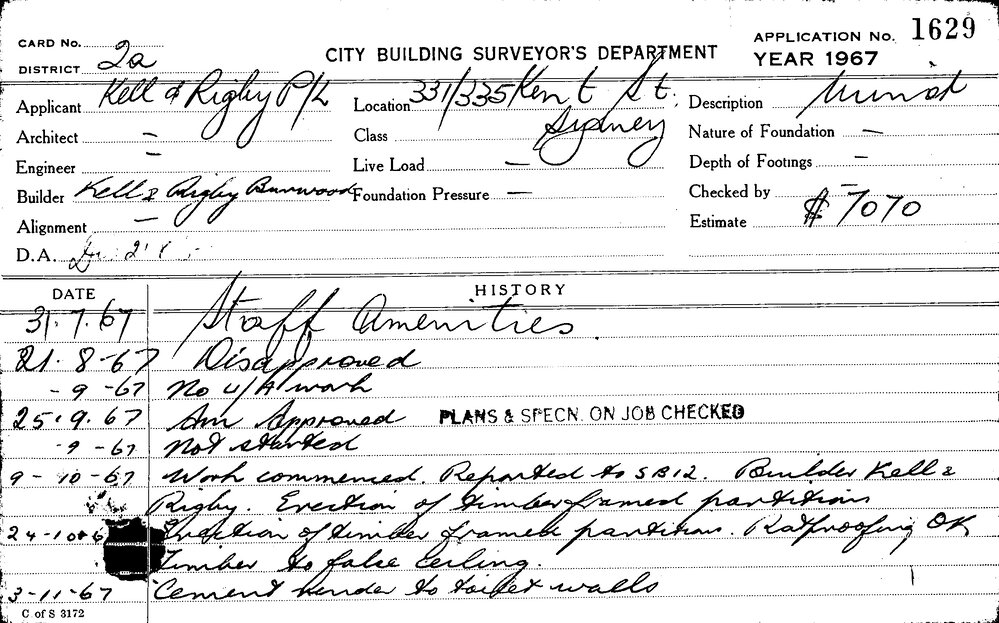 CARD No. 2a
DISTRICT
CITY BUILDING SURVEYOR'S DEPARTMENT
APPLICATION No. 1629
YEAR 1967
Applicant Kell & Rigby P/L
Location 331/335 Kent St. Sydney
Description
Architect —
Class
Nature of Foundation —
Engineer —
Live Load —
Depth of Footings —
Builder Kell & Rigby Burwood
Foundation Pressure —
Checked by —
Alignment —
Estimate $7070
D.A.
DATE HISTORY
31.7.67 Staff Amenities
21.8-67 Disapproved
-9-67 No U/A work
25.9.67 Am Approved PLANS & SPECN. ON JOB CHECKED
-9-67 Not started
9-10-67 Work commenced. Reported to SB12. Builder Kell &
Rigby. Erection of timber framed partitions
24-10-6 Erection of timber framed partitions. Ratproofing OK
Timber to false ceiling.
3-11-67 Cement render to toilet walls
C of S 3172